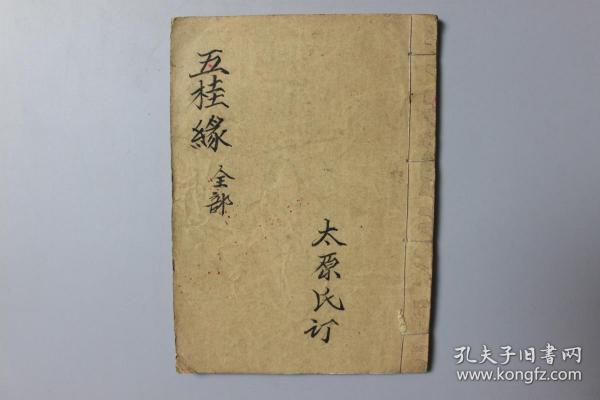 五桂緣
全部
太原氏订
孔夫子旧書网
www.kongfz.com